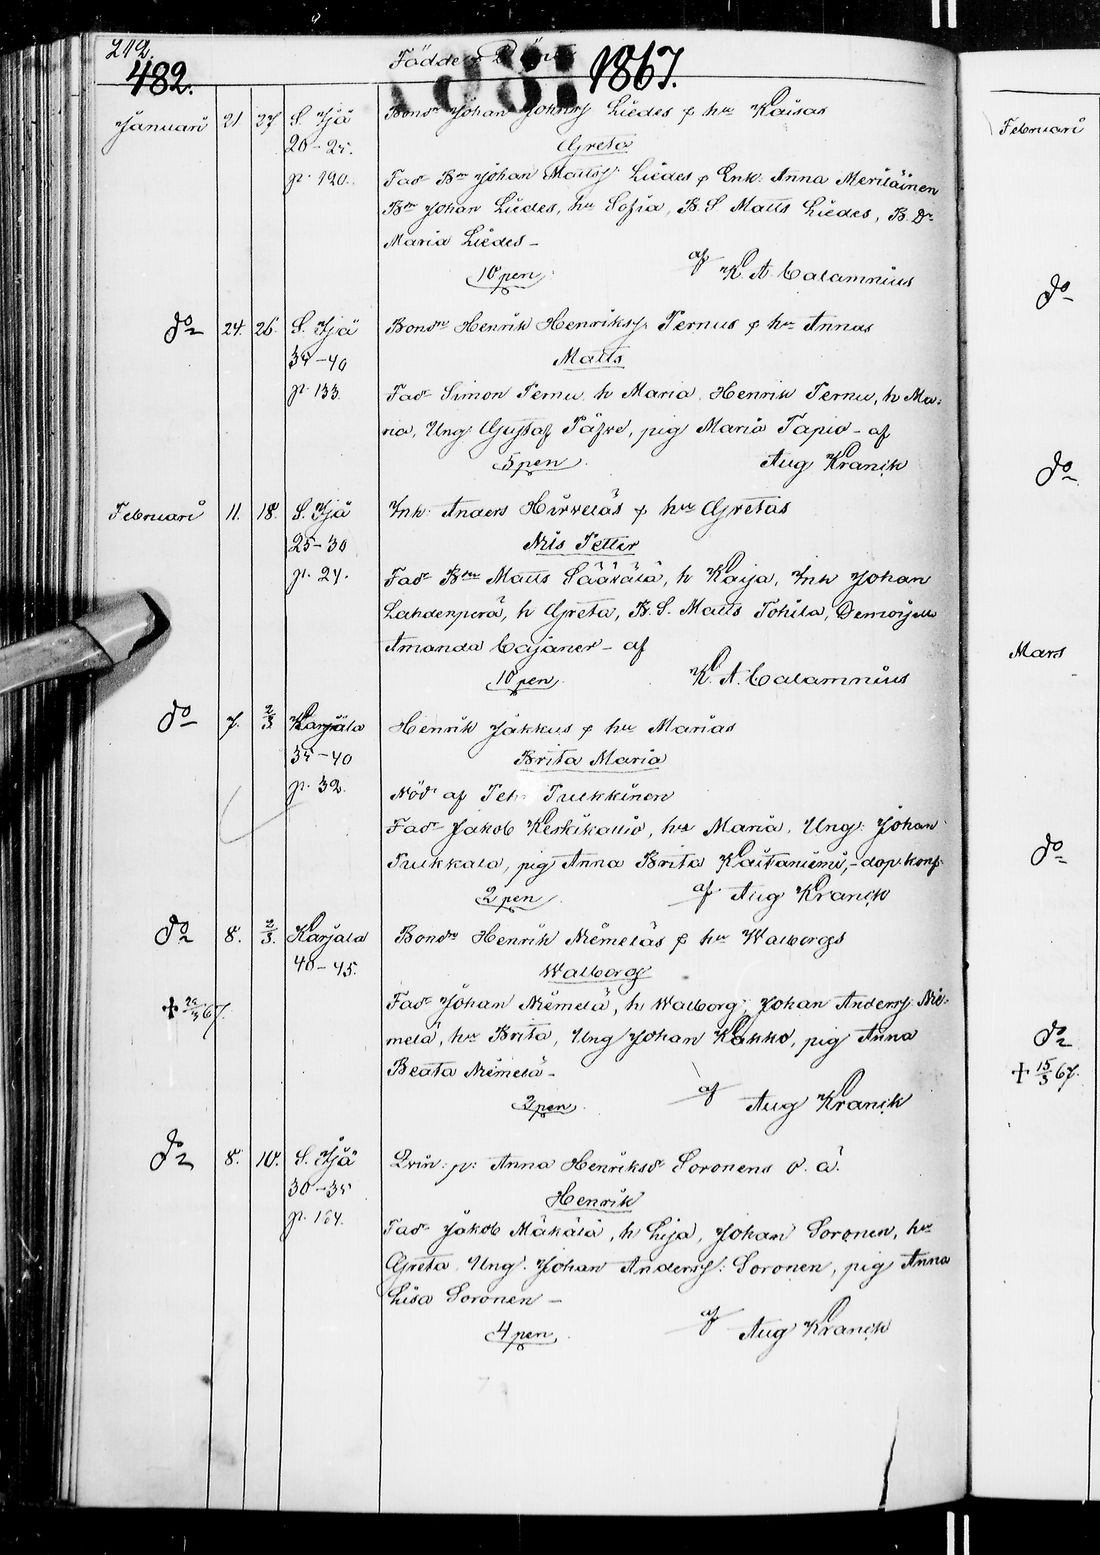 212.
482.
Födde 1867.
Januari 21 27 S. Ijä Bondn Johan Johanss Liedes o hu Kaisas
20-25. Greta
p. 190. Fadr Bn Johan Mattss Liedes o Enk. Anna Meriläinen
Bn Johan Liedes, hu Sofia, B.S. Matts Liedes, B. Dr
Maria Liedes -
10 pen. af K. A. Calamnius
do 24. 26. S. Ijä Bondn Henrik Henrikss Pernus o hu Annas
35-40 Matts
p. 133. Fadr Simon Pernu, h Maria, Henrik Pernu, h Ma-
ria, Ung Gustaf Päfve, pig Maria Tapio - af
5 pen. Aug Kranck
Februari 11. 18. S. Ijä Inh. Anders Hirveläs o hu Gretas
25-30 Nils Petter
p. 24. Fadr Bn Matts Säärälä, h Kaija, Inh Johan
Lahdenperä, h Greta, B.S. Matts Tohila, Demoiselle
Amanda Cajaner - af
10 pen. K. A. Calamnius
do 7. 2/3 Karjala Henrik Jakkus o hu Marias
35-40 Brita Maria
p. 32. Nöd. af Petr Pulkkinen
Fadr Jakob Kerkikallio, hu Maria, Ung. Johan
Pulkkala, pig Anna Brita Kaitaniemi, - dop. konf.
2 pen. af Aug Kranck
do 8. 2/3. Karjala Bondn Henrik Niemeläs o hu Walborgs
40-45. Walborg
+ 67. Fadr Johan Niemelä, h Walborg, Johan Anderss Nie-
melä, hu Brita, Ung Johan Kakko, pig Anna
Beata Niemelä -
2 pen. af Aug Kranck
do 8. 10. S. Ijä Qvin. p. Anna Henriksdr Soronens o. ä.
30-35 Henrik
p. 164. Fadr Jakob Mäkälä, h Lisa, Johan Soronen, hu
Greta, Ung. Johan Anderss. Soronen, pig Anna
Lisa Soronen -
4 pen. af Aug Kranck
Februari
do
do
Mars
do
do
+ 15/3 67.